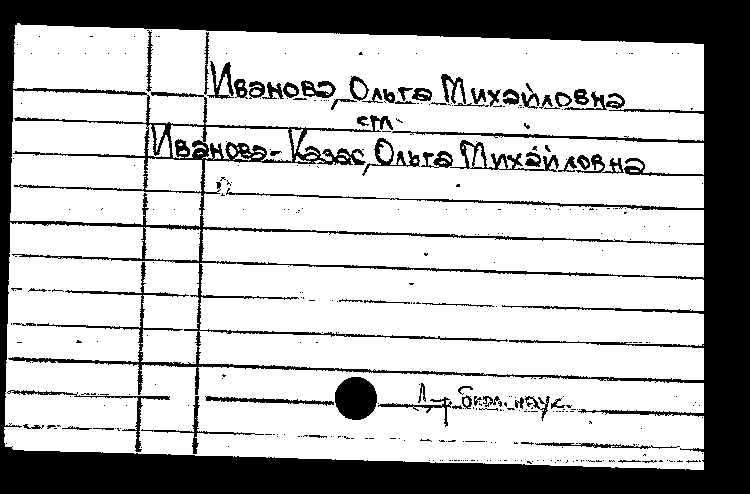 Иванова, Ольга Михайловна
см.
Иванова-Казас, Ольга Михайловна
Д-р биол. наук.